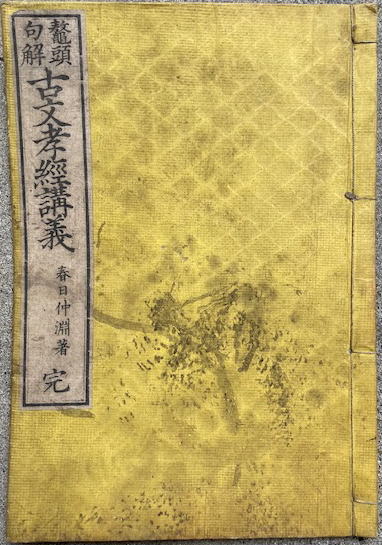 鼇頭
句解
古文孝經講義
春日仲淵著
完